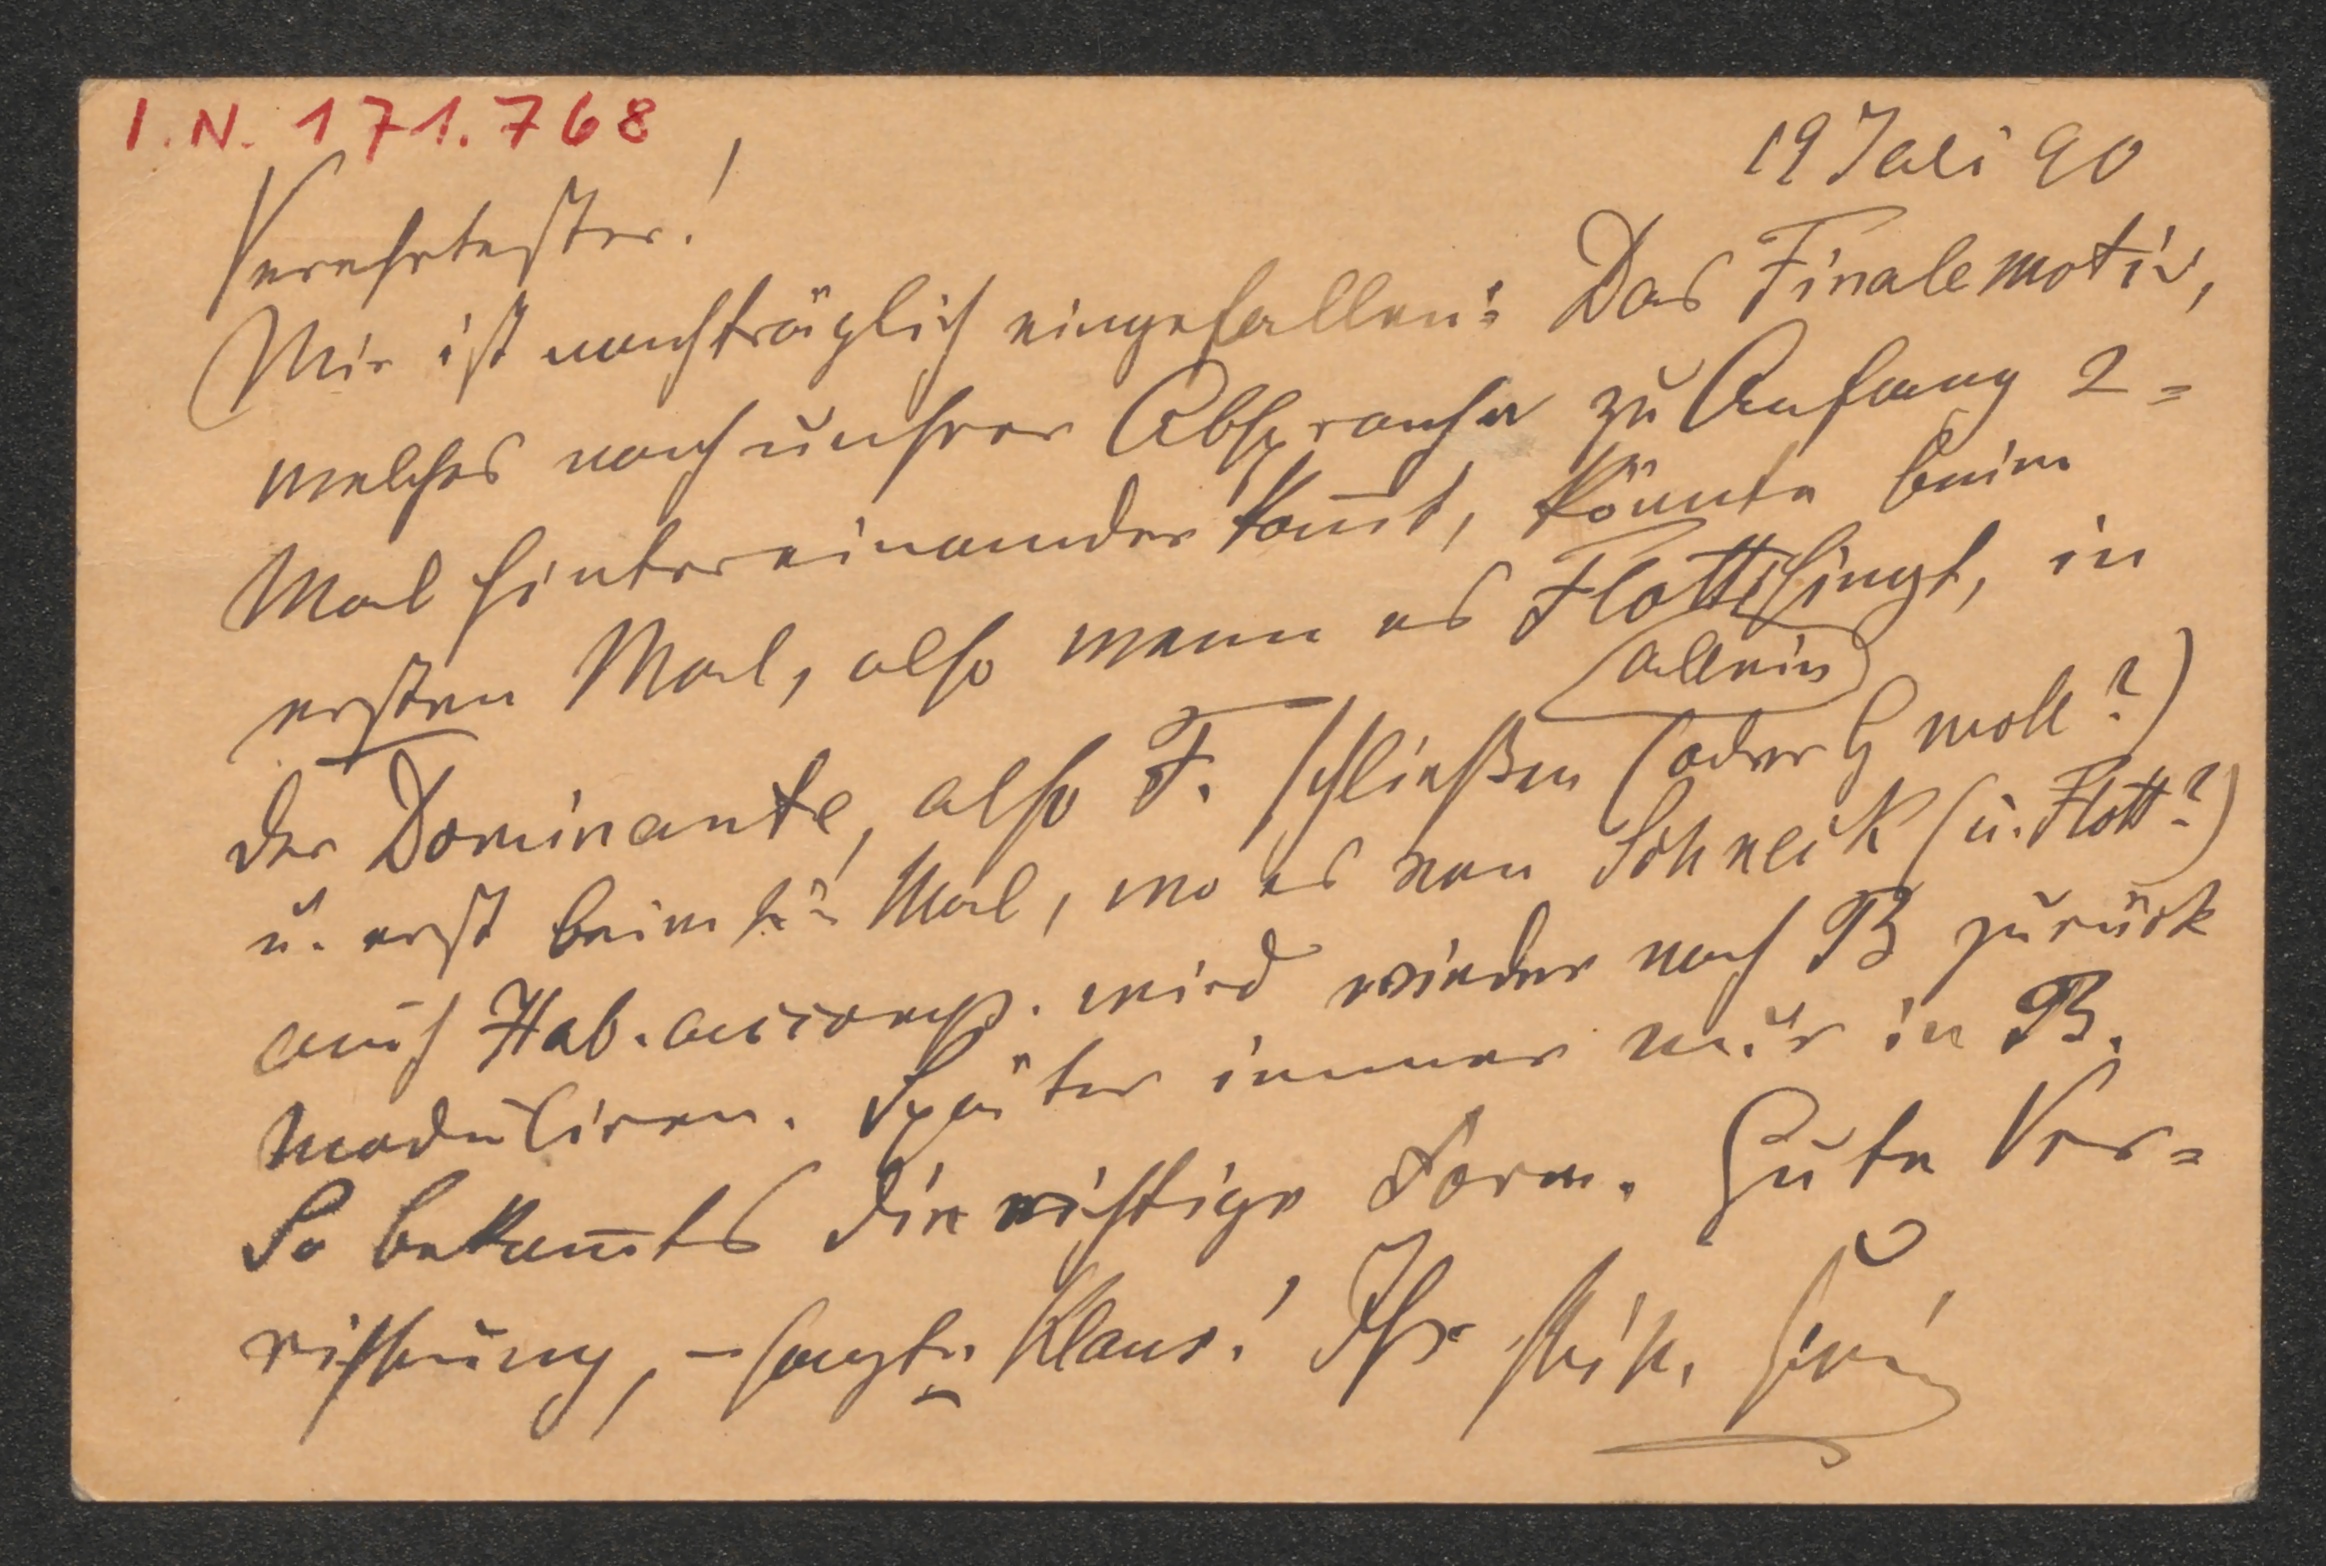 I.N. 171.768
19 Juli 90
Verehrtester!
Mir ist nachträglich eingefallen: Das Finalemotiv,
welches nach unsrer Absprache zu Anfang 2=
Mal hintereinander kom̄t, könnte beim
ersten Mal, also wenn es Flott singt, in
allein
der Dominante, also F. schließen (oder G moll?)
u. erst beim Mal, wo es von Schneik (u. Flott?)
auch Hab. accomp. wird wieder nach B zurück
moduliren. Später immer nur in B.
So bekom̄ts die richtige Form. Gute Ver=
richtung, – sagte Klaus! Ihr